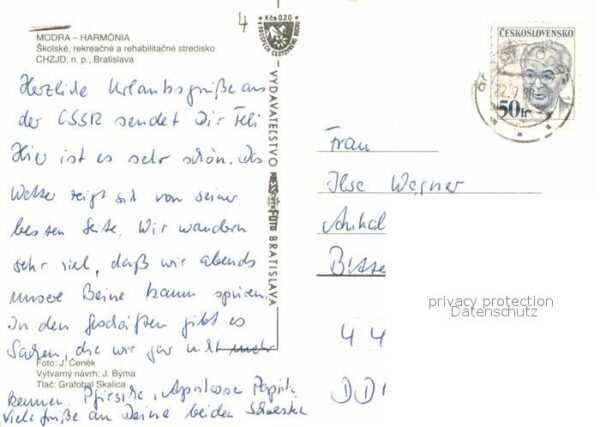 4
MODRA – HARMÓNIA
Školské, rekreačné a rehabilitačné stredisko
CHZJD, n. p., Bratislava
Kčs 0.20
V PROSPECH CESTOVNÉHO RUCHU
ČESKOSLOVENSKO
50 h
22.7.
Herzliche Urlaubsgrüße aus
der CSSR sendet Dir
Hier ist es sehr schön. Das
Wetter zeigt sich von seiner
besten Seite. Wir wandern
sehr viel, daß wir abends
unsere Beine kaum spüren.
In den Geschäften gibt es
Sachen, die wir gar nicht mehr
kennen. Pfirsiche, Aprikosen Paprika
Viele Grüße an Deine beiden Schwestern
VYDAVATEĽSTVO PRESSFOTO BRATISLAVA
Frau
Ilse Wegner
Anhal
Bitte
44
DD
privacy protection
Datenschutz
Foto: J. Čeněk
Výtvarný návrh: J. Býma
Tlač: Grafobal Skalica